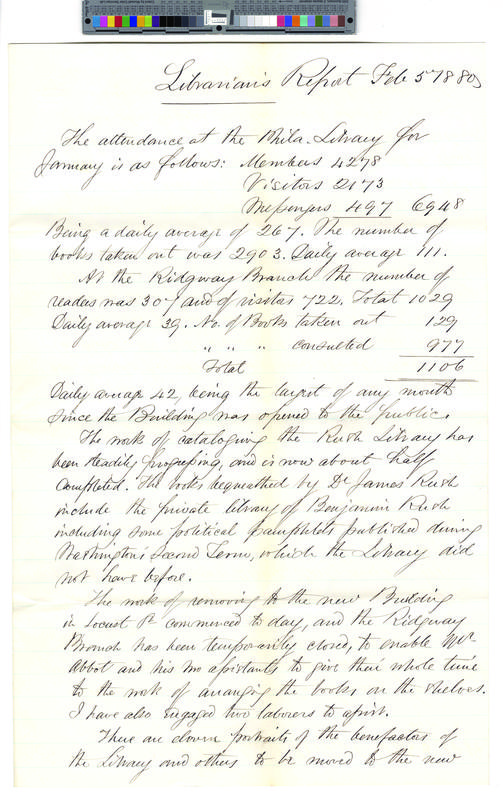 Librarian's Report Feb 5th 1880
The attendance at the Phila. Library for
January is as follows: Members 4278
Visitors 2173
Messengers 497 6948
Being a daily average of 267. The number of
books taken out was 2903. Daily average 111.
At the Ridgway Branch the number of
readers was 307 and of visitors 722. Total 1029
Daily average 39. No. of Books taken out 129
" " " consulted 977
Total 1106
Daily average 42, being the largest of any month
since the Building was opened to the public.
The work of cataloguing the Rush Library has
been steadily progressing, and is now about half
completed. The books bequeathed by Dr James Rush
include the private library of Benjamin Rush
including some political pamphlets published during
Washington's Second Term, which the Library did
not have before.
The work of removing to the new Building
in Locust St commenced to day, and the Ridgway
Branch has been temporarily closed, to enable Mr
Abbot and his two assistants to give their whole time
to the work of arranging the books on the shelves.
I have also engaged two laborers to assist.
There are eleven portraits of the benefactors of
the Library and others to be moved to the new